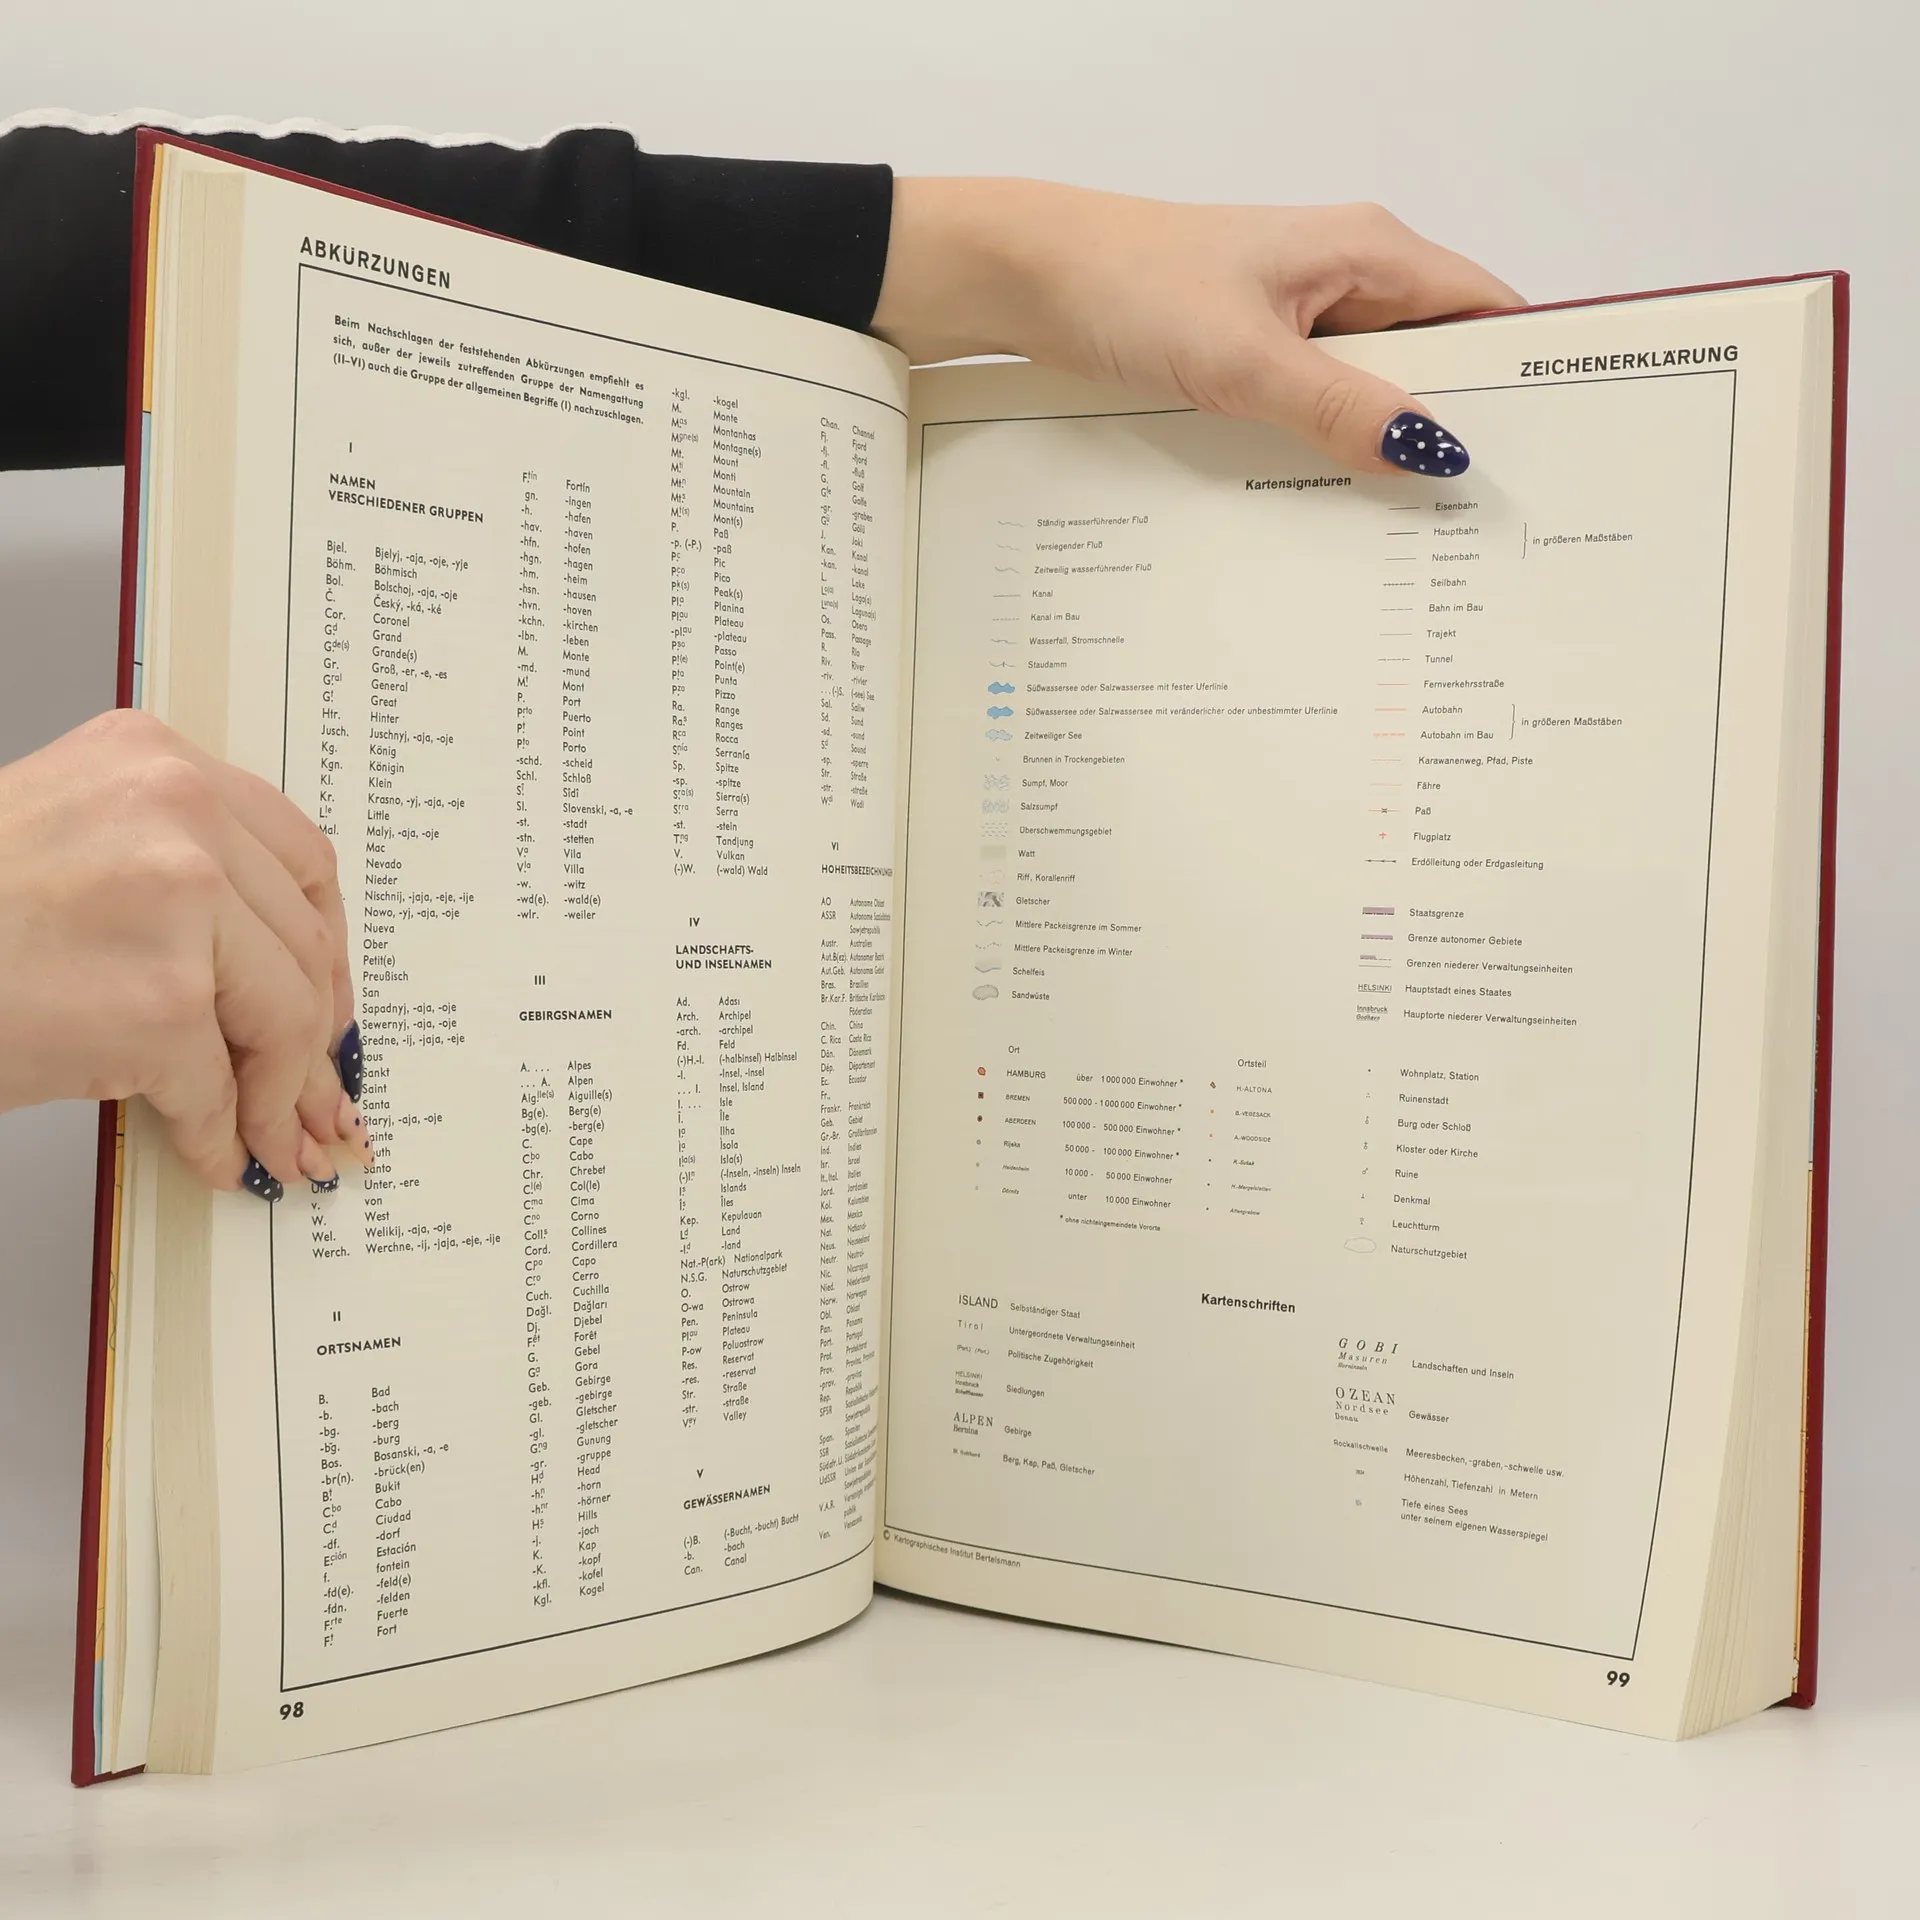 ABKÜRZUNGEN
Beim Nachschlagen der feststehenden Abkürzungen empfiehlt es
sich, außer der jeweils zutreffenden Gruppe der Namengattung
(II–VI) auch die Gruppe der allgemeinen Begriffe (I) nachzuschlagen.
I
NAMEN
VERSCHIEDENER GRUPPEN
Bjel. Bjelyj, -aja, -oje, -yje
Böhm. Böhmisch
Bol. Bolschoj, -aja, -oje
Č. Český, -ká, -ké
Cor. Coronel
Gd Grand
Gde(s) Grande(s)
Gr. Groß, -er, -e, -es
Gral General
Gt Great
Htr. Hinter
Jusch. Juschnyj, -aja, -oje
Kg. König
Kgn. Königin
Kl. Klein
Kr. Krasno, -yj, -aja, -oje
Lle Little
Mal. Malyj, -aja, -oje
Mac
Nevado
Nieder
Nischnij, -jaja, -eje, -ije
Nowo, -yj, -aja, -oje
Nueva
Ober
Petit(e)
Preußisch
San
Sapadnyj, -aja, -oje
Sewernyj, -aja, -oje
Sredne, -ij, -jaja, -eje
Sankt
Saint
Santa
Staryj, -aja, -oje
Santo
Unter, -ere
v. von
W. West
Wel. Welikij, -aja, -oje
Werch. Werchne, -ij, -jaja, -eje, -ije
II
ORTSNAMEN
B. Bad
-b. -bach
-bg. -berg
-bg. -burg
Bos. Bosanski, -a, -e
-br(n). -brück(en)
Bt Bukit
Cbo Cabo
Cd Ciudad
-df. -dorf
Eción Estación
f. fontein
-fd(e). -feld(e)
-fdn. -felden
Frte Fuerte
Ft Fort
Ftin Fortín
gn. -ingen
-h. -hafen
-hav. -haven
-hfn. -hofen
-hgn. -hagen
-hm. -heim
-hsn. -hausen
-hvn. -hoven
-kchn. -kirchen
-lbn. -leben
M. Monte
-md. -mund
Mt Mont
P. Port
Prto Puerto
Pt Point
Pto Porto
-schd. -scheid
Schl. Schloß
Si Sidi
Sl. Slovenski, -a, -e
-st. -stadt
-stn. -stetten
Va Vila
Vla Villa
-w. -witz
-wd(e). -wald(e)
-wlr. -weiler
III
GEBIRGSNAMEN
A. . . . Alpes
. . . A. Alpen
Aiglle(s) Aiguille(s)
Bg(e). Berg(e)
-bg(e). -berg(e)
C. Cape
Cbo Cabo
Chr. Chrebet
Cl(e) Col(le)
Cma Cima
Cno Corno
Colls Collines
Cord. Cordillera
Cpo Capo
Cro Cerro
Cuch. Cuchilla
Dağl. Dağları
Dj. Djebel
Fêt Forêt
G. Gebel
Ga Gora
Geb. Gebirge
-geb. -gebirge
Gl. Gletscher
-gl. -gletscher
Gng Gunung
-gr. -gruppe
Hd Head
-hn -horn
-hnr -hörner
Hs Hills
-j. -joch
K. Kap
-K. -kopf
-kfl. -kofel
Kgl. Kogel
-kgl. -kogel
M. Monte
Mas Montanhas
Mgne(s) Montagne(s)
Mt. Mount
Mti Monti
Mtn Mountain
Mts Mountains
Mt(s) Mont(s)
P. Paß
-p. (-P.) -paß
Pc Pic
Pco Pico
Pk(s) Peak(s)
Pla Planina
Plau Plateau
-plau -plateau
Pso Passo
Pt(e) Point(e)
Pta Punta
Pzo Pizzo
Ra. Range
Ras Ranges
Rca Rocca
Snia Serranía
Sp. Spitze
-sp. -spitze
Sra(s) Sierra(s)
Srra Serra
-st. -stein
Tng Tandjung
V. Vulkan
(-)W. (-wald) Wald
IV
LANDSCHAFTS-
UND INSELNAMEN
Ad. Adası
Arch. Archipel
-arch. -archipel
Fd. Feld
(-)H.-I. (-halbinsel) Halbinsel
-I. -Insel, -insel
. . . I. Insel, Island
I. . . . Isle
Î. Île
Ia Ilha
Ia Isola
Ila(s) Isla(s)
(-)In (-Inseln, -inseln) Inseln
Is Islands
Îs Îles
Kep. Kepulauan
Ld Land
-ld -land
Nat.-P(ark) Nationalpark
N.S.G. Naturschutzgebiet
O. Ostrow
O-wa Ostrowa
Pen. Peninsula
Plau Plateau
P-ow Poluostrow
Res. Reservat
-res. -reservat
Str. Straße
-str. -straße
Vey Valley
V
GEWÄSSERNAMEN
(-)B. (-Bucht, -bucht) Bucht
-b. -bach
Can. Canal
Chan. Channel
Fj. Fjord
-fj. -fjord
-fl. -fluß
G. Golf
Gle Golfe
-gr. -graben
Gü Gölü
J. Joki
Kan. Kanal
-kan. -kanal
L. Lake
Lo(s) Lago(s)
Luna(s) Laguna(s)
Os. Osero
Pass. Passage
R. Rio
Riv. River
-riv. -rivier
. . . (-)S. (-see) See
Sal. Salar
Sd. Sund
-sd. -sund
Sd Sound
-sp. -sperre
Str. Straße
-str. -straße
Wdi Wadi
VI
HOHEITSBEZEICHNUNGEN
AO Autonome Oblast
ASSR Autonome Sozialistische
Sowjetrepublik
Austr. Australien
Aut.B(ez). Autonomer Bezirk
Aut.Geb. Autonomes Gebiet
Bras. Brasilien
Br.Kar.F. Britische Karibische
Föderation
Chin. China
C. Rica Costa Rica
Dän. Dänemark
Dép. Département
Ec. Ecuador
Fr.,
Frankr. Frankreich
Geb. Gebiet
Gr.-Br. Großbritannien
Ind. Indien
Isr. Israel
It., Ital. Italien
Jord. Jordanien
Kol. Kolumbien
Mex. Mexico
Nat. National-
Neus. Neuseeland
Neutr. Neutral-
Nic. Nicaragua
Nied. Niederlande
Norw. Norwegen
Obl. Oblast
Pan. Panama
Port. Portugal
Prot. Protektorat
Prov. Provinz
-prov. -provinz
Rep. Republik
SFSR
Sowjetrepublik
Span. Spanien
SSR
UdSSR
V.A.R.
Ven. Venezuela
98
ZEICHENERKLÄRUNG
Kartensignaturen
Ständig wasserführender Fluß
Versiegender Fluß
Zeitweilig wasserführender Fluß
Kanal
Kanal im Bau
Wasserfall, Stromschnelle
Staudamm
Süßwassersee oder Salzwassersee mit fester Uferlinie
Süßwassersee oder Salzwassersee mit veränderlicher oder unbestimmter Uferlinie
Zeitweiliger See
Brunnen in Trockengebieten
Sumpf, Moor
Salzsumpf
Überschwemmungsgebiet
Watt
Riff, Korallenriff
Gletscher
Mittlere Packeisgrenze im Sommer
Mittlere Packeisgrenze im Winter
Schelfeis
Sandwüste
Eisenbahn
Hauptbahn
Nebenbahn
in größeren Maßstäben
Seilbahn
Bahn im Bau
Trajekt
Tunnel
Fernverkehrsstraße
Autobahn
Autobahn im Bau
in größeren Maßstäben
Karawanenweg, Pfad, Piste
Fähre
Paß
Flugplatz
Erdölleitung oder Erdgasleitung
Staatsgrenze
Grenze autonomer Gebiete
Grenzen niederer Verwaltungseinheiten
HELSINKI Hauptstadt eines Staates
Innsbruck Hauptorte niederer Verwaltungseinheiten
Ort
Ortsteil
HAMBURG über 1 000 000 Einwohner * H.-ALTONA
BREMEN 500 000 - 1 000 000 Einwohner * B.-VEGESACK
ABERDEEN 100 000 - 500 000 Einwohner * A.-WOODSIDE
Rijeka 50 000 - 100 000 Einwohner * R.-Sušak
Heidenheim 10 000 - 50 000 Einwohner H.-Mergelstetten
Dömitz unter 10 000 Einwohner Altengrabow
* ohne nichteingemeindete Vororte
Wohnplatz, Station
Ruinenstadt
Burg oder Schloß
Kloster oder Kirche
Ruine
Denkmal
Leuchtturm
Naturschutzgebiet
Kartenschriften
ISLAND Selbständiger Staat
Tirol Untergeordnete Verwaltungseinheit
(Port.) (Port.) Politische Zugehörigkeit
HELSINKI
Innsbruck
Schaffhausen
Siedlungen
ALPEN
Bernina
Gebirge
Berg, Kap, Paß, Gletscher
GOBI
Masuren
Landschaften und Inseln
OZEAN
Nordsee
Donau
Gewässer
Rockallschwelle Meeresbecken, -graben, -schwelle usw.
Höhenzahl, Tiefenzahl in Metern
Tiefe eines Sees
unter seinem eigenen Wasserspiegel
© Kartographisches Institut Bertelsmann
99